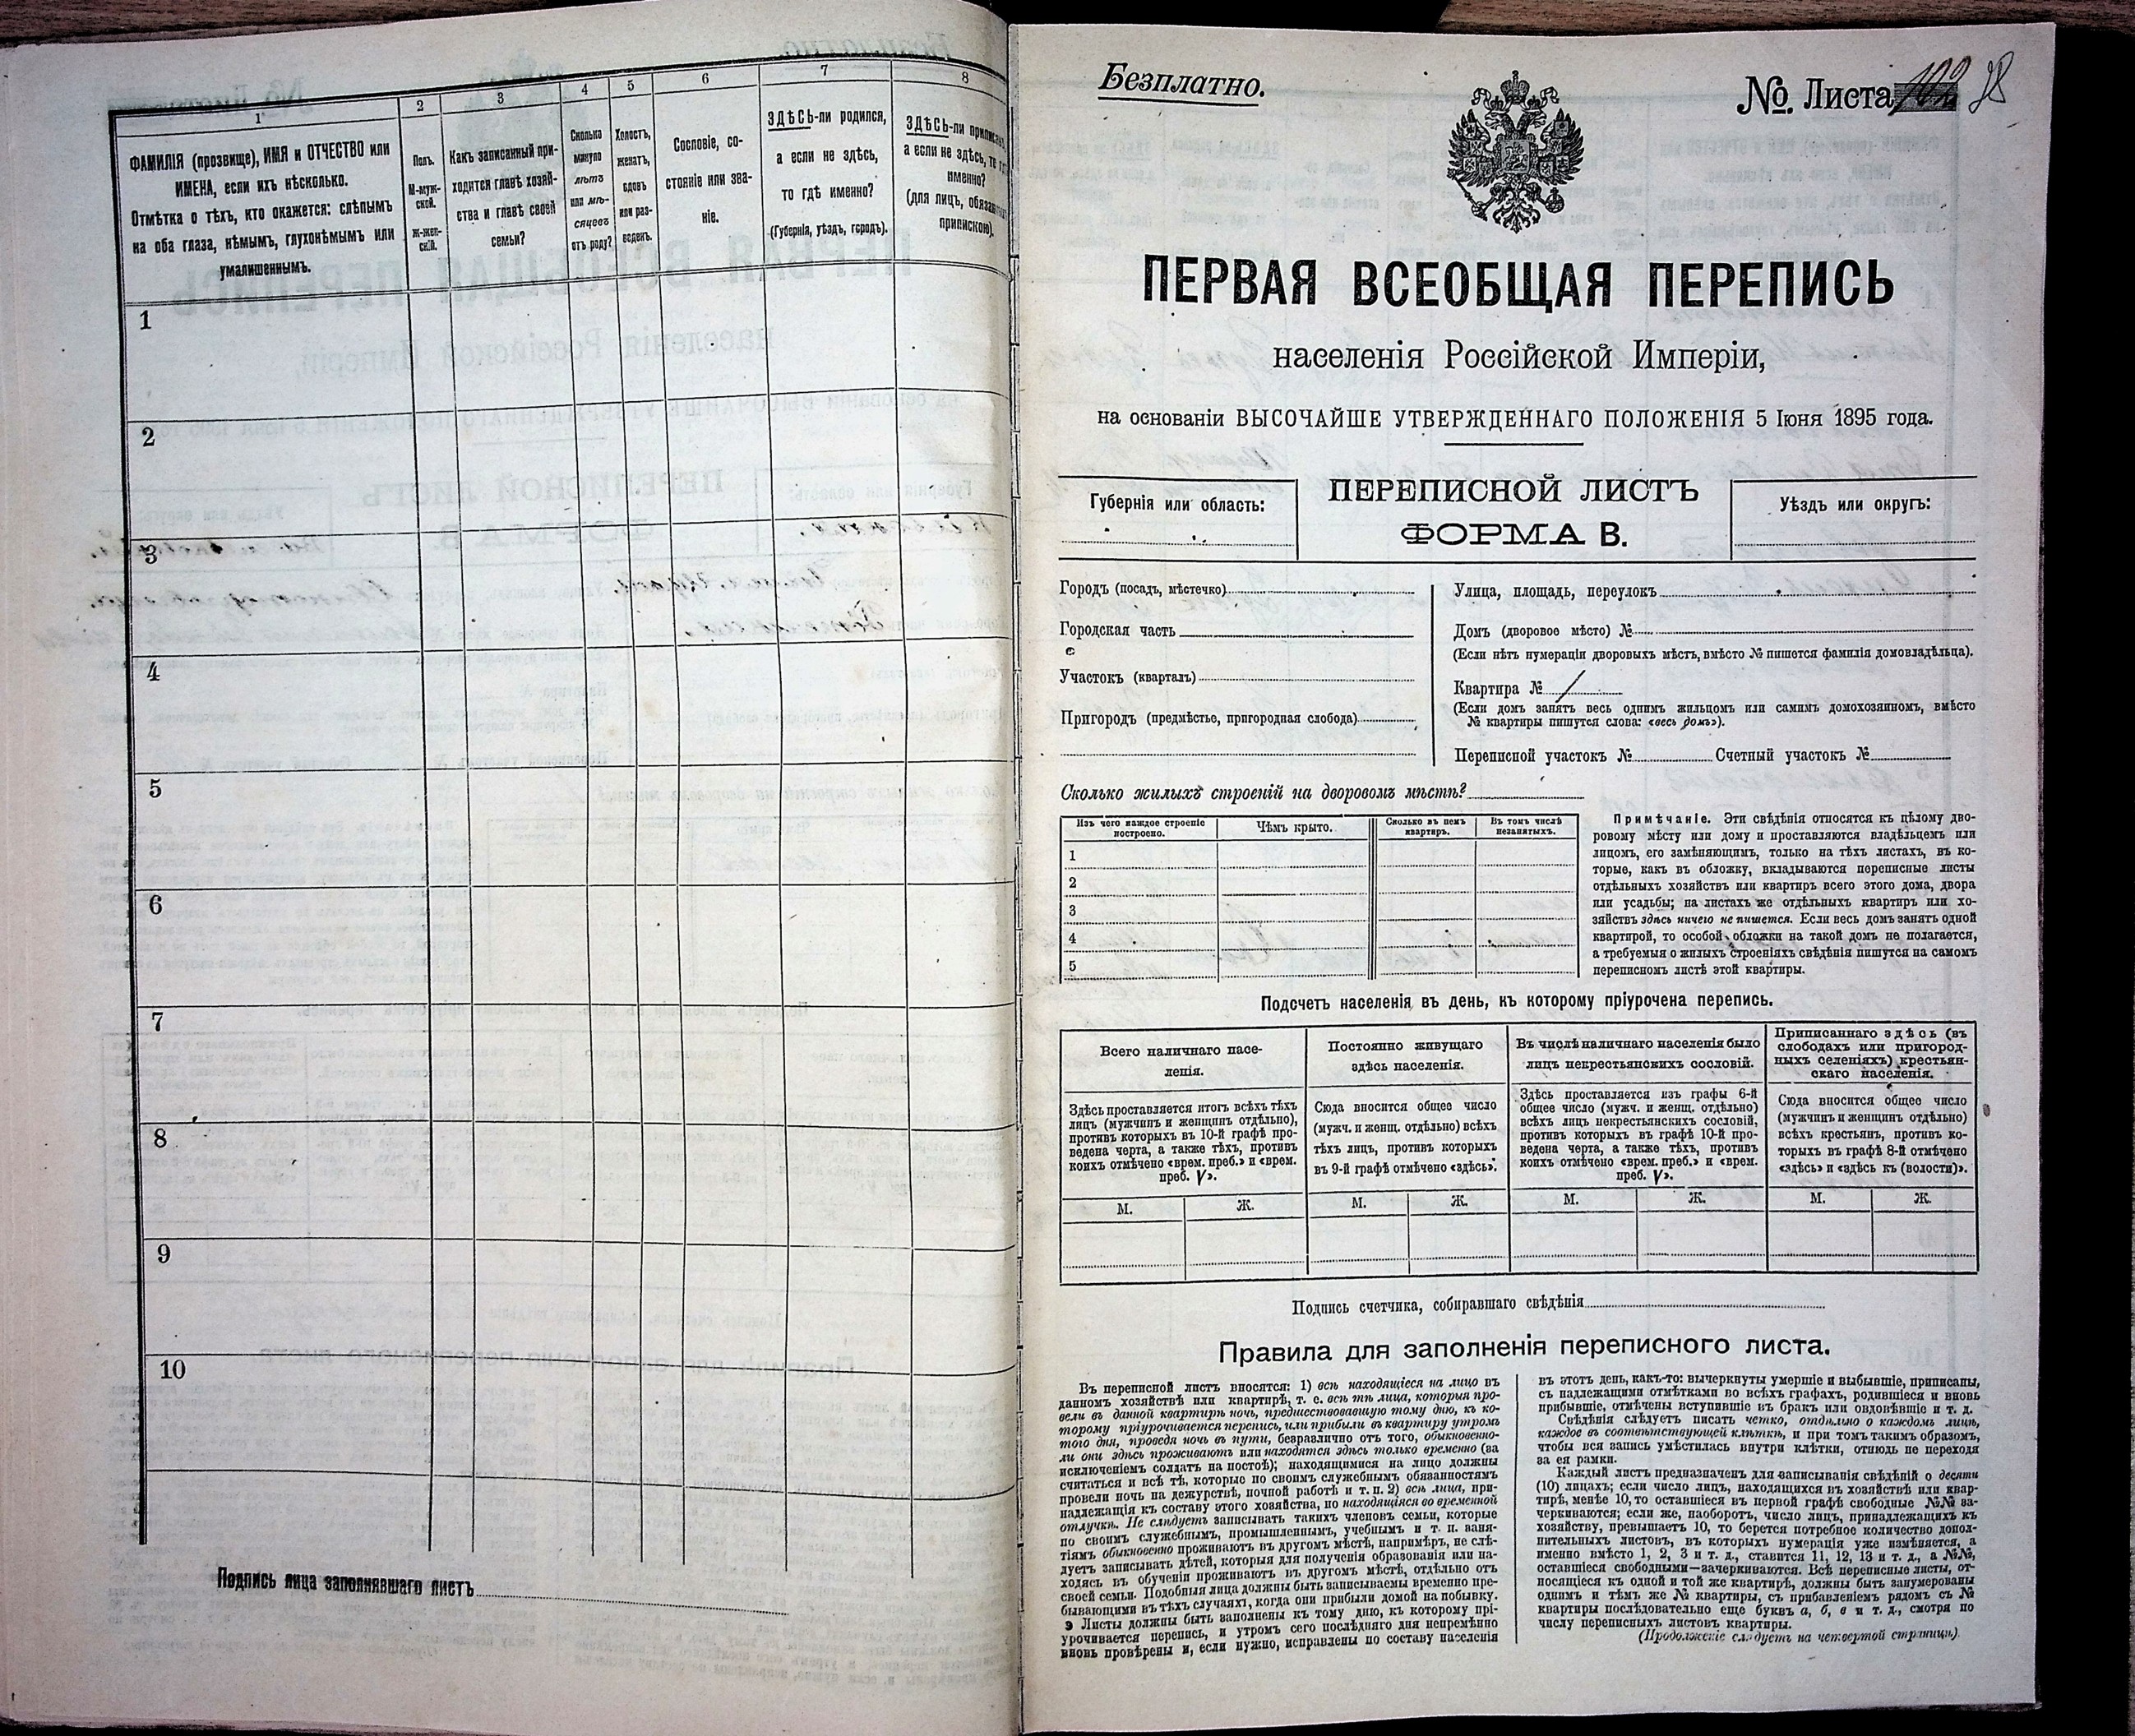 1
2
3
4
5
6
7
8
ФАМИЛІЯ (прозвище), ИМЯ и ОТЧЕСТВО или
ИМЕНА, если ихъ нѣсколько.
Отмѣтка о тѣхъ, кто окажется: слѣпымъ
на оба глаза, нѣмымъ, глухонѣмымъ или
умалишеннымъ.
Полъ.
М-муж-
ской.
Ж-жен-
скій.
Какъ записанный при-
ходится главѣ хозяй-
ства и главѣ своей
семьи?
Сколько
минуло
лѣтъ
или мѣ-
сяцевъ
отъ роду?
Холостъ,
женатъ,
вдовъ
или раз-
веденъ.
Сословіе, со-
стояніе или зва-
ніе.
ЗДѢСЬ-ли родился,
а если не здѣсь,
то гдѣ именно?
(Губернія, уѣздъ, городъ).
ЗДѢСЬ-ли
а если не здѣсь,
именно?
(для лицъ,
припискою).
1
2
3
4
5
6
7
8
9
10
Подпись лица заполнявшаго листъ
Безплатно.
№ Листа 102 78
ПЕРВАЯ ВСЕОБЩАЯ ПЕРЕПИСЬ
населенія Россійской Имперіи,
на основаніи ВЫСОЧАЙШЕ УТВЕРЖДЕННАГО ПОЛОЖЕНІЯ 5 Іюня 1895 года.
Губернія или область:
ПЕРЕПИСНОЙ ЛИСТЪ
ФОРМА В.
Уѣздъ или округъ:
Городъ (посадъ, мѣстечко)
Городская часть
Участокъ (кварталъ)
Пригородъ (предмѣстье, пригородная слобода)
Улица, площадь, переулокъ
Домъ (дворовое мѣсто) №
(Если нѣтъ нумераціи дворовыхъ мѣстъ, вмѣсто № пишется фамилія домовладѣльца).
Квартира №
(Если домъ занятъ весь однимъ жильцомъ или самимъ домохозяиномъ, вмѣсто
№ квартиры пишутся слова: «весь домъ»).
Переписной участокъ № Счетный участокъ №
Сколько жилыхъ строеній на дворовомъ мѣстѣ?
Изъ чего каждое строеніе
построено.
Чѣмъ крыто.
Сколько въ немъ
квартиръ.
Въ томъ числѣ
незанятыхъ.
1
2
3
4
5
Примѣчаніе. Эти свѣдѣнія относятся къ цѣлому дво-
ровому мѣсту или дому и проставляются владѣльцемъ или
лицомъ, его замѣняющимъ, только на тѣхъ листахъ, въ ко-
торые, какъ въ обложку, вкладываются переписные листы
отдѣльныхъ хозяйствъ или квартиръ всего этого дома, двора
или усадьбы; на листахъ же отдѣльныхъ квартиръ или хо-
зяйствъ здѣсь ничего не пишется. Если весь домъ занятъ одной
квартирой, то особой обложки на такой домъ не полагается,
а требуемыя о жилыхъ строеніяхъ свѣдѣнія пишутся на самомъ
переписномъ листѣ этой квартиры.
Подсчетъ населенія въ день, къ которому пріурочена перепись.
Всего наличнаго насе-
ленія.
Здѣсь проставляется итогъ всѣхъ тѣхъ
лицъ (мужчинъ и женщинъ отдѣльно),
противъ которыхъ въ 10-й графѣ про-
ведена черта, а также тѣхъ, противъ
коихъ отмѣчено «врем. преб.» и «врем.
преб. V».
Постоянно живущаго
здѣсь населенія.
Сюда вносится общее число
(мужч. и женщ. отдѣльно) всѣхъ
тѣхъ лицъ, противъ которыхъ
въ 9-й графѣ отмѣчено «здѣсь».
Въ числѣ наличнаго населенія было
лицъ некрестьянскихъ сословій.
Здѣсь проставляется изъ графы 6-й
общее число (мужч. и женщ. отдѣльно)
всѣхъ лицъ некрестьянскихъ сословій,
противъ которыхъ въ графѣ 10-й про-
ведена черта, а также тѣхъ, противъ
коихъ отмѣчено «врем. преб.» и «врем.
преб. V».
Приписаннаго здѣсь (въ
слободахъ или пригород-
ныхъ селеніяхъ) крестьян-
скаго населенія.
Сюда вносится общее число
(мужчинъ и женщинъ отдѣльно)
всѣхъ крестьянъ, противъ ко-
торыхъ въ графѣ 8-й отмѣчено
«здѣсь» и «здѣсь къ (волости)».
М. Ж. М. Ж. М. Ж. М. Ж.
Подпись счетчика, собиравшаго свѣдѣнія
Правила для заполненія переписного листа.
Въ переписной листъ вносятся: 1) всѣ находящіеся на лицо въ
данномъ хозяйствѣ или квартирѣ, т. е. всѣ тѣ лица, которыя про-
вели въ данной квартирѣ ночь, предшествовавшую тому дню, къ ко-
торому пріурочивается перепись, или прибыли въ квартиру утромъ
того дня, проведя ночь въ пути, безразлично отъ того, обыкновенно-
ли они здѣсь проживаютъ или находятся здѣсь только временно (за
исключеніемъ солдатъ на постоѣ); находящимися на лицо должны
считаться и всѣ тѣ, которые по своимъ служебнымъ обязанностямъ
провели ночь на дежурствѣ, ночной работѣ и т. п. 2) всѣ лица, при-
надлежащія къ составу этого хозяйства, но находящіяся во временной
отлучкѣ. Не слѣдуетъ записывать такихъ членовъ семьи, которые
по своимъ служебнымъ, промышленнымъ, учебнымъ и т. п. заня-
тіямъ обыкновенно проживаютъ въ другомъ мѣстѣ, напримѣръ, не слѣ-
дуетъ записывать дѣтей, которыя для полученія образованія или на-
ходясь въ обученіи проживаютъ въ другомъ мѣстѣ, отдѣльно отъ
своей семьи. Подобныя лица должны быть записываемы временно пре-
бывающими въ тѣхъ случаяхъ, когда они прибыли домой на побывку.
Листы должны быть заполнены къ тому дню, къ которому прі-
урочивается перепись, и утромъ сего послѣдняго дня непремѣнно
вновь провѣрены и, если нужно, исправлены по составу населенія
въ этотъ день, какъ-то: вычеркнуты умершіе и выбывшіе, приписаны,
съ надлежащими отмѣтками во всѣхъ графахъ, родившіеся и вновь
прибывшіе, отмѣчены вступившіе въ бракъ или овдовѣвшіе и т. д.
Свѣдѣнія слѣдуетъ писать четко, отдѣльно о каждомъ лицѣ,
каждое въ соотвѣтствующей клѣткѣ, и при томъ такимъ образомъ,
чтобы вся запись умѣстилась внутри клѣтки, отнюдь не переходя
за ея рамки.
Каждый листъ предназначенъ для записыванія свѣдѣній о десяти
(10) лицахъ; если число лицъ, находящихся въ хозяйствѣ или квар-
тирѣ, менѣе 10, то оставшіеся въ первой графѣ свободные №№ за-
черкиваются; если же, наоборотъ, число лицъ, принадлежащихъ къ
хозяйству, превышаетъ 10, то берется потребное количество допол-
нительныхъ листовъ, въ которыхъ нумерація уже измѣняется, а
именно вмѣсто 1, 2, 3 и т. д., ставится 11, 12, 13 и т. д., а №№,
оставшіеся свободными—зачеркиваются. Всѣ переписные листы, от-
носящіеся къ одной и той же квартирѣ, должны быть занумерованы
однимъ и тѣмъ же № квартиры, съ прибавленіемъ рядомъ съ №
квартиры послѣдовательно еще буквъ а, б, в и т. д., смотря по
числу переписныхъ листовъ квартиры.
(Продолженіе слѣдуетъ на четвертой страницѣ)